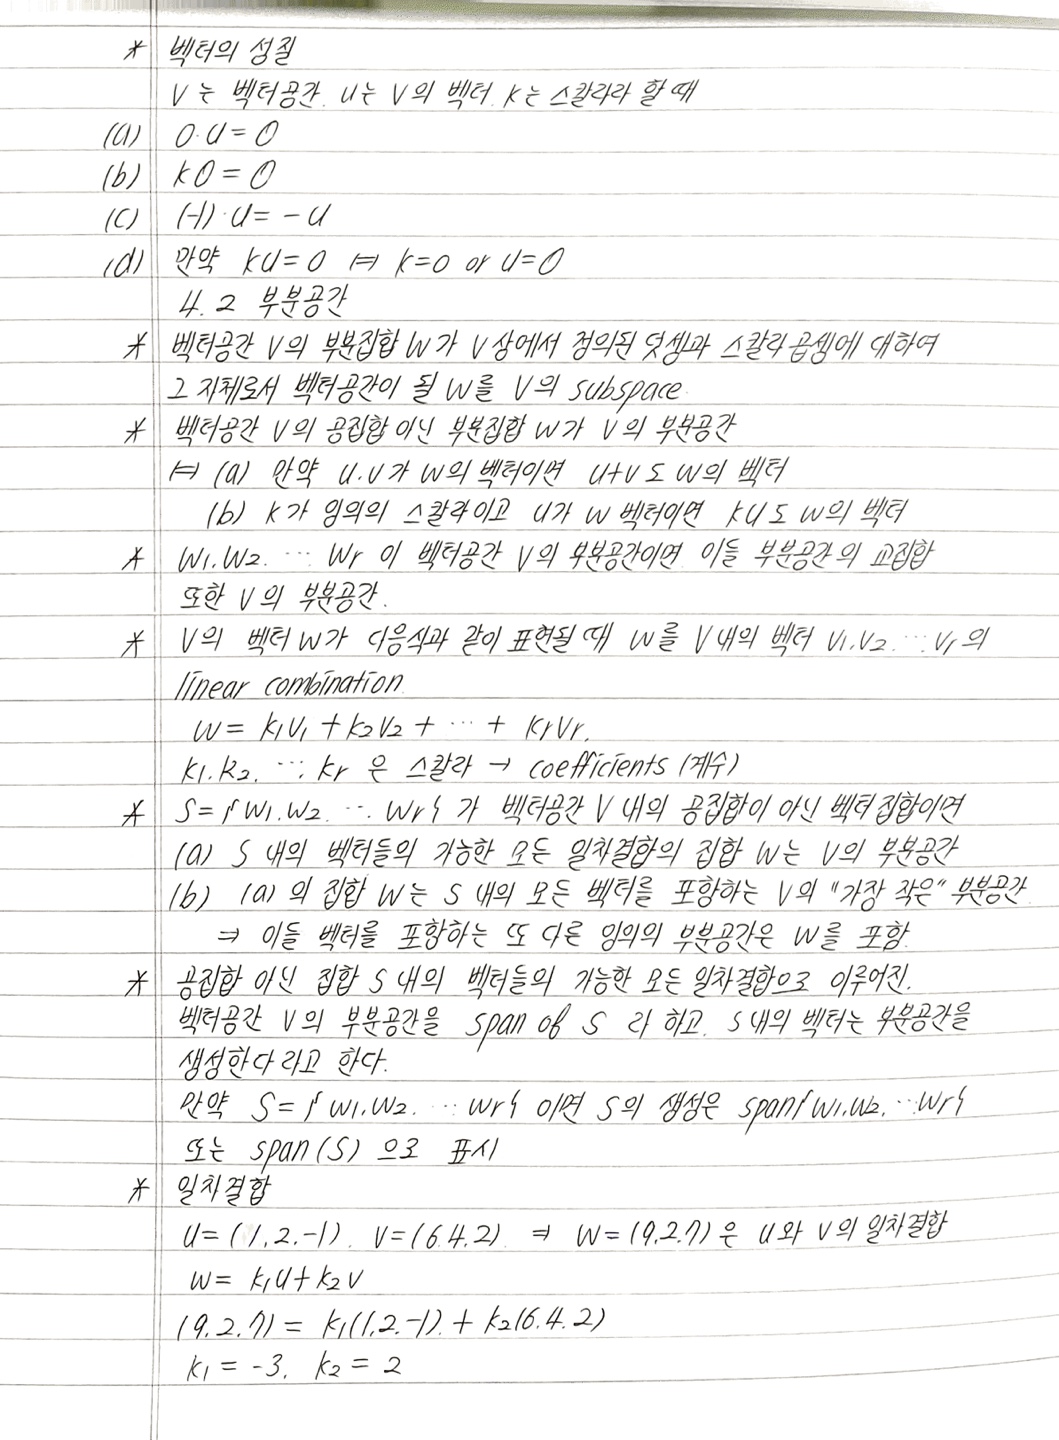 * 벡터의 성질
V는 벡터공간. u는 V의 벡터. k는 스칼라라 할 때
(a) 0·u = 0
(b) k0 = 0
(c) (-1)·u = -u
(d) 만약 ku=0 ⟺ k=0 or u=0
4.2 부분공간
* 벡터공간 V의 부분집합 W가 V상에서 정의된 덧셈과 스칼라 곱셈에 대하여
그 자체로서 벡터공간이 될 W를 V의 subspace.
* 벡터공간 V의 공집합 아닌 부분집합 W가 V의 부분공간
⟺ (a) 만약 u.v가 W의 벡터이면 u+v도 W의 벡터
(b) k가 임의의 스칼라이고 u가 W 벡터이면 ku도 W의 벡터
* W1.W2. … Wr 이 벡터공간 V의 부분공간이면 이들 부분공간의 교집합
또한 V의 부분공간.
* V의 벡터 W가 다음식과 같이 표현될 때 W를 V내의 벡터 V1.V2. … Vr의
linear combination.
W = k1V1 + k2V2 + … + krVr.
k1.k2. … kr 은 스칼라 → coefficients (계수)
* S={W1.W2. … Wr}가 벡터공간 V 내의 공집합이 아닌 벡터집합이면
(a) S 내의 벡터들의 가능한 모든 일차결합의 집합 W는 V의 부분공간
(b) (a)의 집합 W는 S 내의 모든 벡터를 포함하는 V의 "가장 작은" 부분공간
⇒ 이들 벡터를 포함하는 또 다른 임의의 부분공간은 W를 포함.
* 공집합 아닌 집합 S 내의 벡터들의 가능한 모든 일차결합으로 이루어진.
벡터공간 V의 부분공간을 span of S 라 하고. S내의 벡터는 부분공간을
생성한다라고 한다.
만약 S={W1.W2. … Wr} 이면 S의 생성은 span{W1.W2. … Wr}
또는 span(S) 으로 표시
* 일차결합
u=(1.2.-1). v=(6.4.2) ⇒ W=(9.2.7)은 u와 v의 일차결합
W = k1u+k2v
(9.2.7) = k1(1.2.-1). + k2(6.4.2)
k1 = -3. k2 = 2